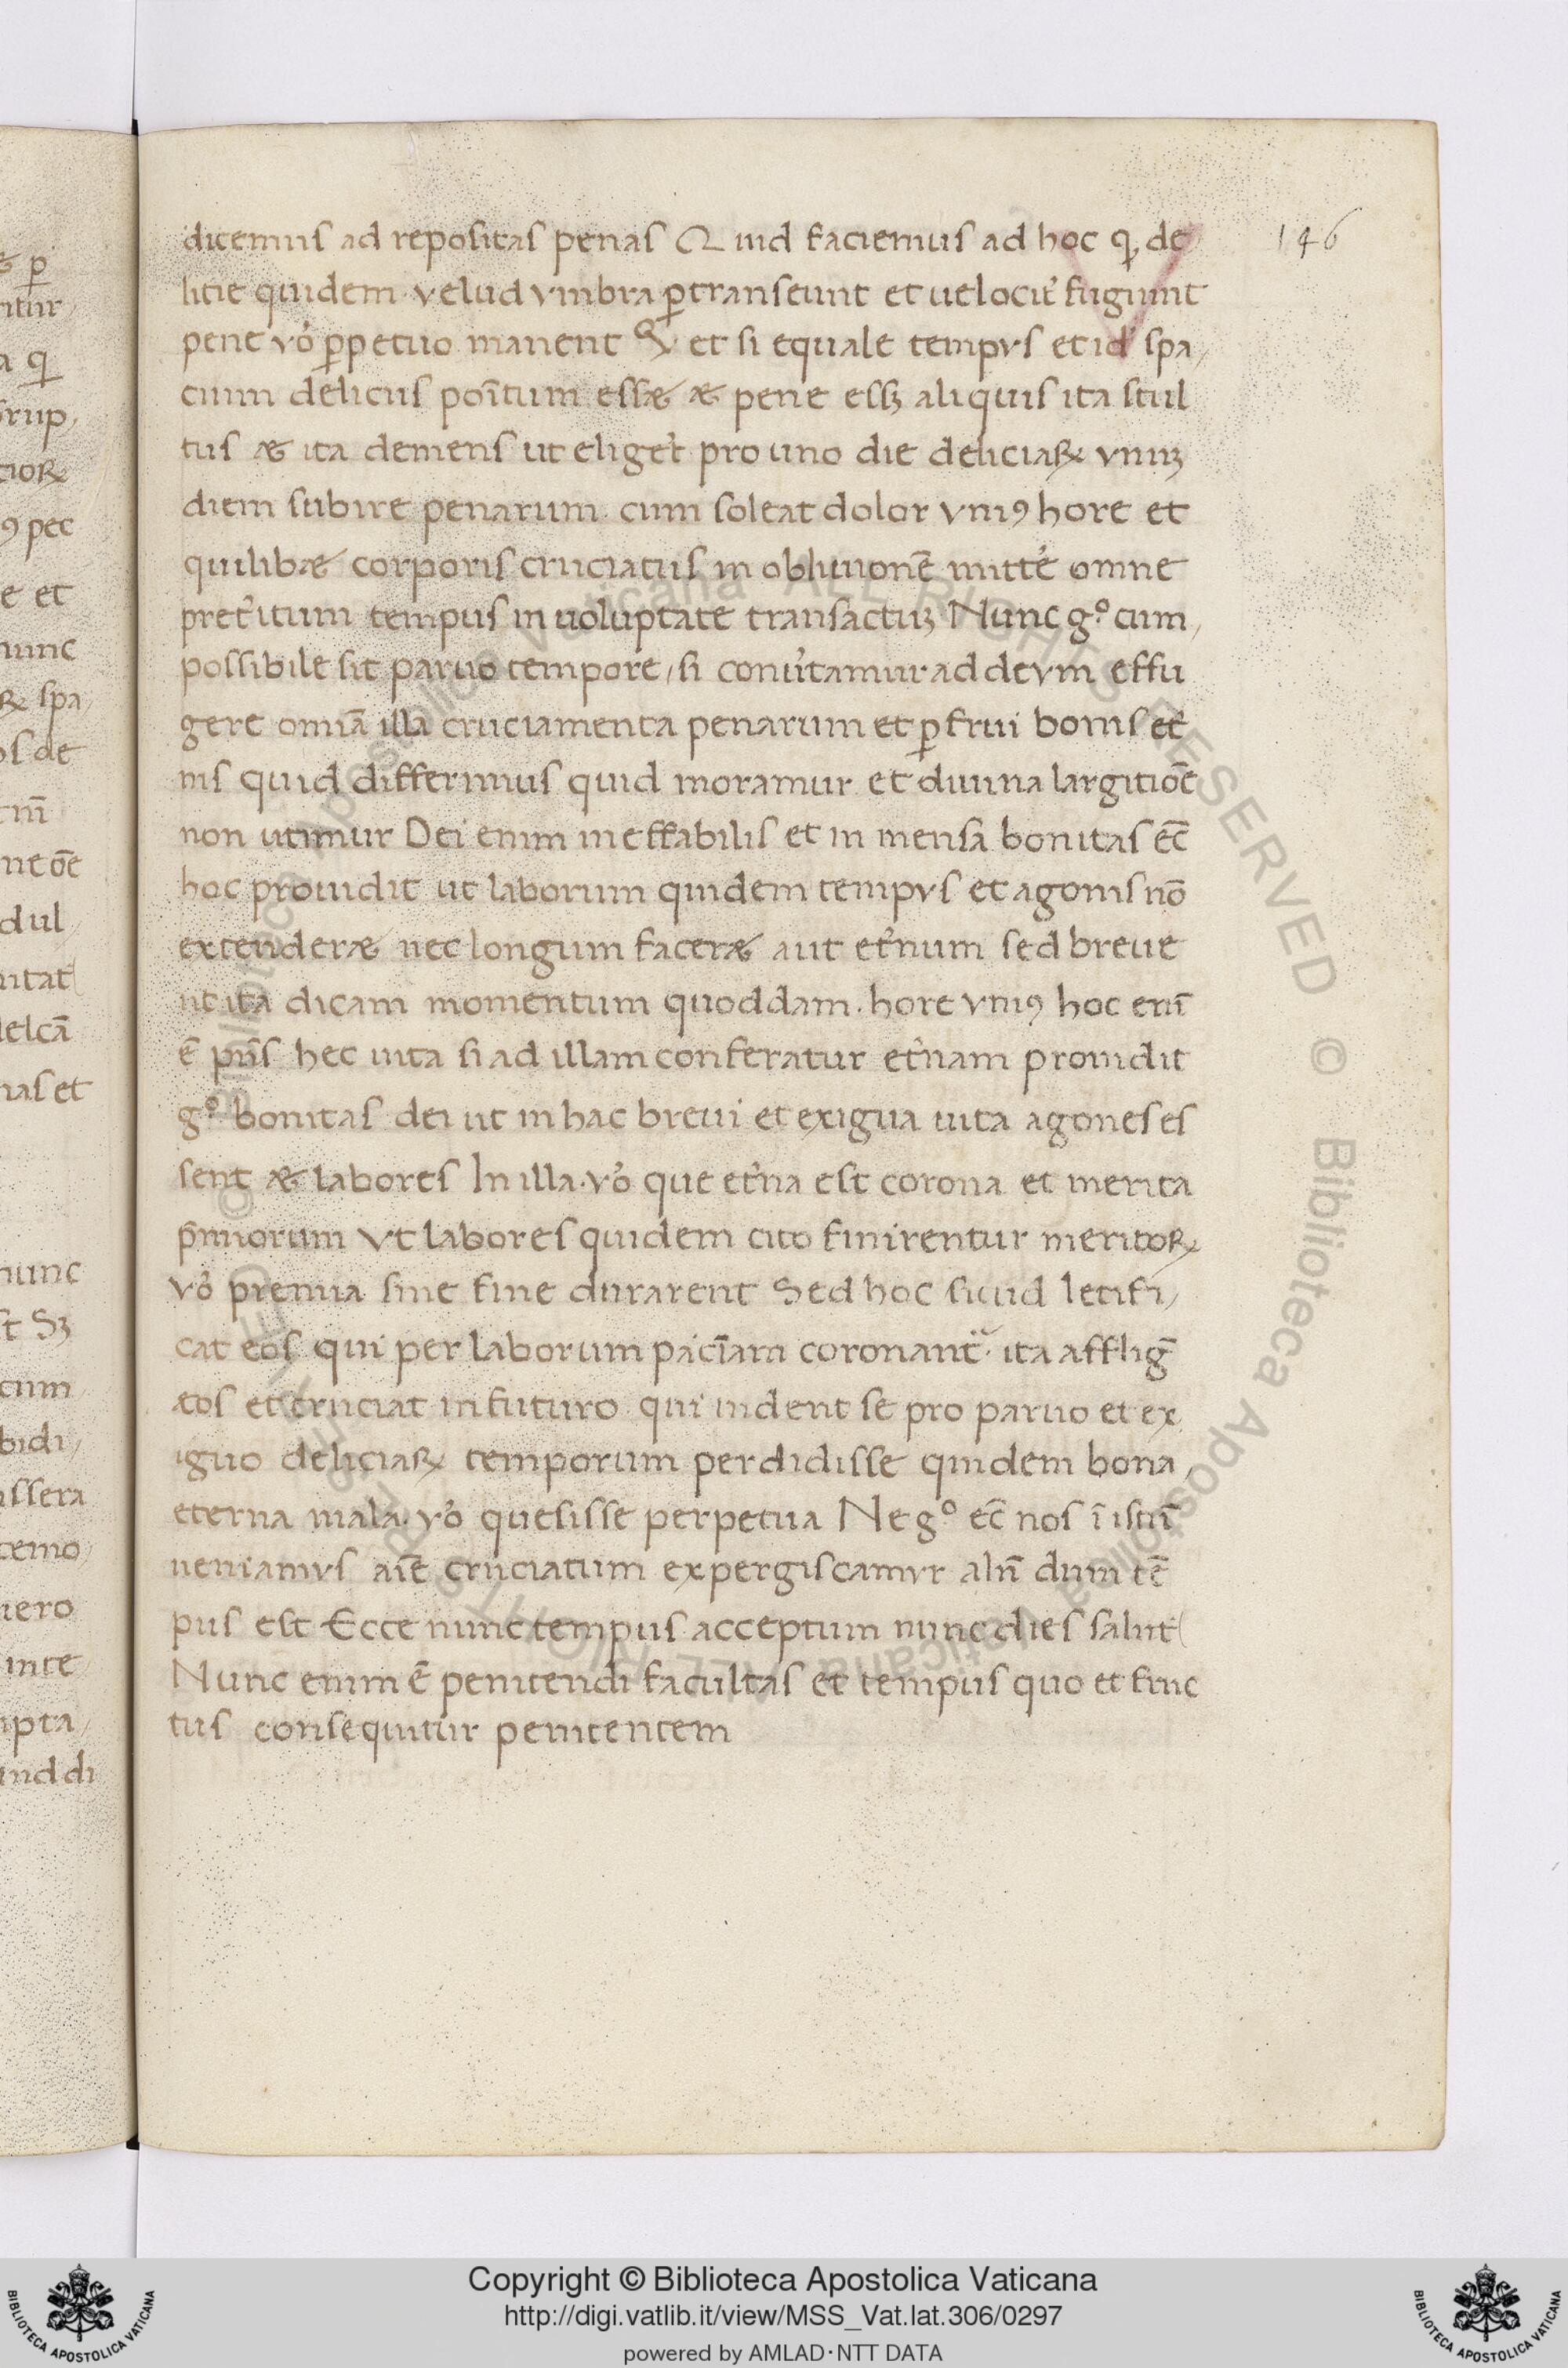 146
dicemus ad repositas penas Quid faciemus ad hoc ꝙ de
litie quidem velud vmbra ꝑtranseunt et uelocit᾽ fugiunt
pene vo᾽ ꝑpetuo manent et si equale tempvs et id᾽ spa,
cium deliciis poītum essæ æ pene essꝫ aliquis ita stul
tus æ ita demens ut eliget᾽ pro uno die deliciaꝝ vnuꝫ
diem subire penarum cum soleat dolor vniꝰ hore et
quilibæ corporis cruciatus in obliuionē mitte᾽ omne
pret᾽itum tempus in uoluptate transactuꝫ Nunc gͦ cum,
possibile sit paruo tempore, si conu᾽tamur ad devm effu
gere omiā illa cruciamenta penarum et ꝑfrui bonis et᾽
nis quid differimus quid moramur et diuina largitiōe
non utimur Dei enim ineffabilis et in mensa bonitas ec̄
hoc prouidit ut laborum quidem tempvs et agonis nō
extenderæ nec longum faceræ aut et᾽num sed breue
ut ita dicam momentum quoddam. hore vniꝰ hoc enī
ē pn̄s hec uita si ad illam conferatur et᾽nam prouidit
gͦ bonitas dei ut in hac brevi et exigua uita agones es
sent æ labores In illa. vo᾽ que et᾽na est corona et merita
p̄miorum Vt labores quidem cito finirentur meritoꝝ
vo᾽ premia sine fine durarent Sed hoc sicud letifi,
cat eos qui per laborum paciam coronant᾽ ita affliḡ
eos et cruciat in futuro qui uident se pro paruo et ex
iguo deliciaꝝ temporum perdidisse quidem bona,
eterna mala. vo᾽ quesisse perpetua Ne gͦ ec̄ nos ī istū
ueniamvs aīe cruciatum expergiscamvr alīi dum tē
pus est Ecce nunc tempus acceptum nunc dies salut
Nunc enim ē penitendi facultas et tempus quo et fruc
tus consequitur penitentem
Copyright © Biblioteca Apostolica Vaticana
http://digi.vatlib.it/view/MSS_Vat.lat.306/0297
powered by AMLAD·NTT DATA